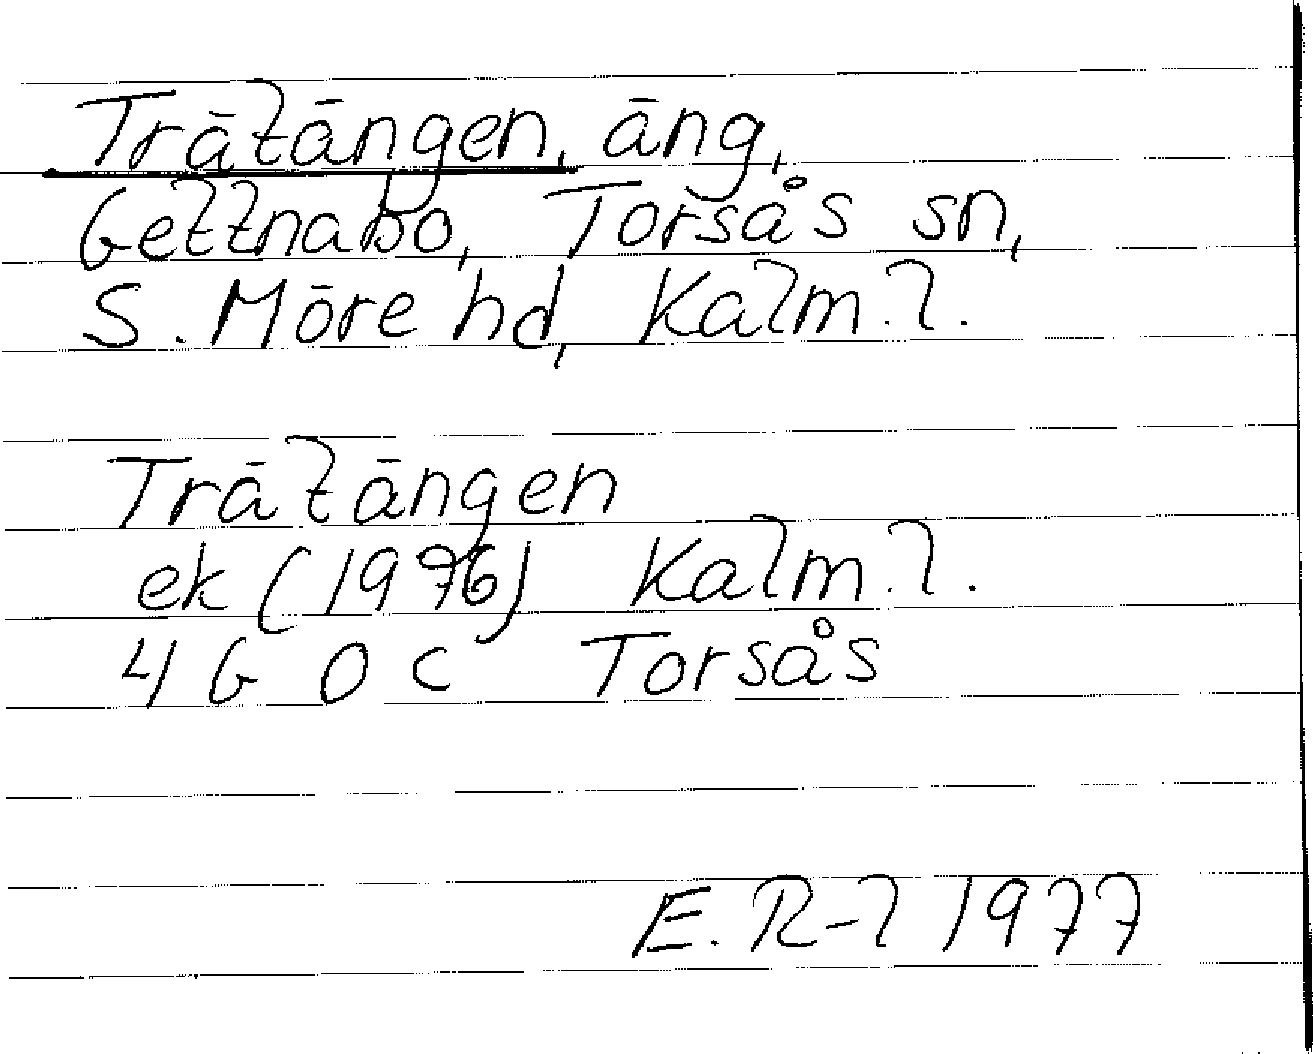 Trätängen, äng,
Gettnabo, Torsås sn,
S. Möre hd, Kalm. l.
Trätängen
ek (1976) Kalm. l.
4 G 0 c Torsås
E. R-l 1977